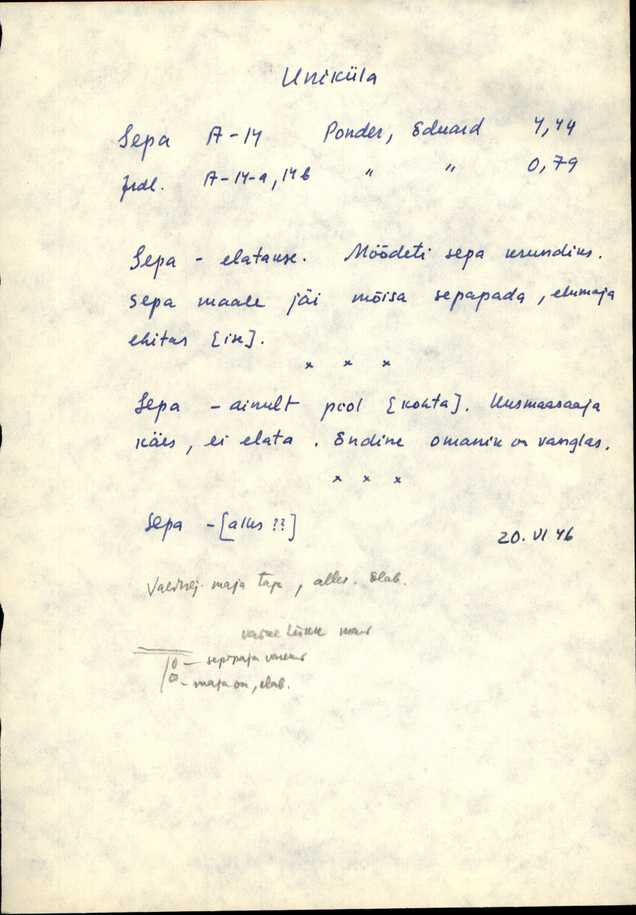 Uniküla
Sepa A-14 Ponder, Eduard 7,44
Jrdl. A-14-a, 14b " " 0,79
Sepa - elatakse. Möödeti sepa krundiks.
Sepa maale jäi mõisa sepapada, elumaja
ehitas [ise].
x x x
Sepa - ainult pool [kohta]. Uusmaasaaja
käes, ei elata. Endine omanik on vanglas.
x x x
Sepa - [alles ??]
20. VI 46
maja , alles. Elab.
sepipaja
- maja on, elab.